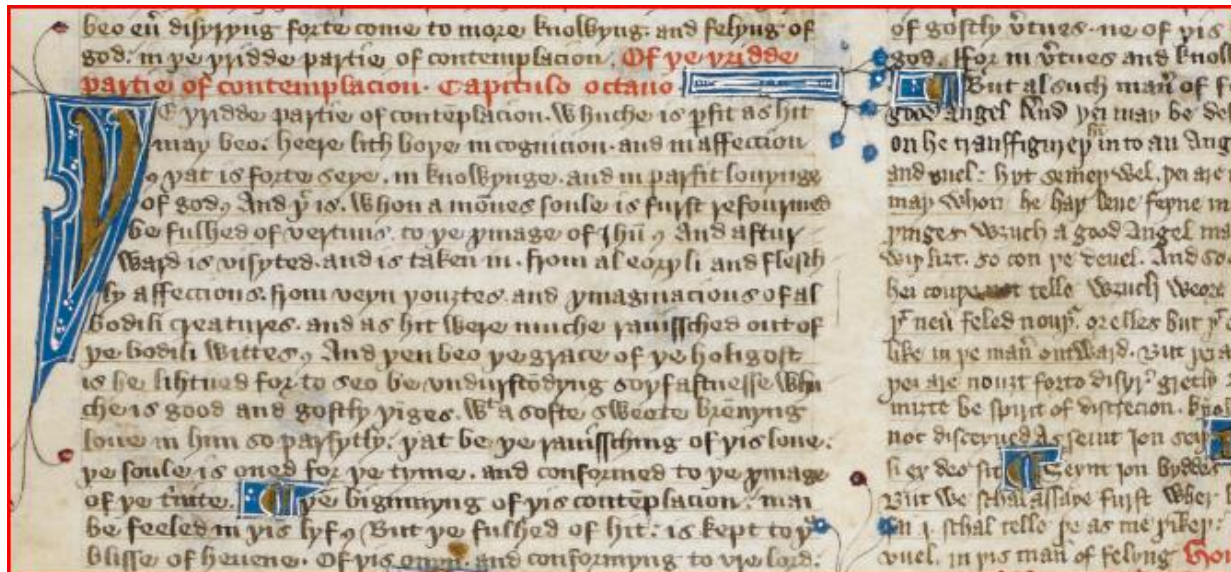 beo eu̅ disyryng forte come to more knowyng· and felyng of
god· in þe þridde partie of contemplacion. Of þe þridde
partie of contemplacion· Capitulo octauo
Þe þridde partie of conte̅placion· Whuche is p̱fit as hit
may beo· heere lith boþe in cognicion· and in affection
þat is forte seye. in knowynge· and in parfit louynge
of god· And þ̅ is. Whon a mo̅nes soule is furst refourmed
be fulhed of vertuus. to þe ymage of Jhu̅· And aftur
ward is visyted· and is taken in. from al eorþli and flesch
ly affections. from veyn þouȝtes. and ymaginacions of al
bodili creatures. and as hit were muche rauissched out of
þe bodili wittes· And þen beo þe grace of þe holigost
is he lihtned for to seo be vndursto̅dyng soþfastnesse whu
che is good and gostly þi̅ges. Wᵗ a softe sweete bre̅nyng
loue in him so parfytly. þat be þe rauissching of þis loue.
þe soule is oned for þe tyme. and conformed to þe ymage
of þe t̾nite. Þe biginnyng of þis conte̅placion. mai
be feeled in þis lyf· But þe fulhed of hit. is kept to þ̅
blisse of heuene. Of þis onyng. and conformyng to vre lord.
of gostly v̾tues· ne of þis
god. ffor in v̾tues and know
But al such man̅ of f
good angel And þei may be de
on he transfigureþ him in to an Ang
and vuel: hyt semeþ wel. þei are
may whon he haþ leue feyne in
þinges wȝuch a good Angel ma
wiþ liȝt. so con þe deuel. And so
hei couþe not telle wȝuch weore
þ̅ neu̅ feled nouþ̾. or elles but
like in þe man̅ outward. But þei a
þei are nouȝt forto disyr̾ gretly
miȝte be spirit of discrecion. kno
not disceyued As seint Jon seiþ
si ex deo sit Seynt Jon byddeþ
But we schal assaye furst wher
in i. schal telle þe as me þinkeþ.
vuel. in þis man̅ of felyng Hou